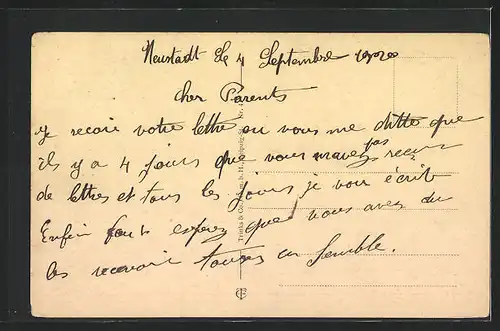 Neustadt le 4 Septembre 1920
cher Parents
je recoie votre lettre ou vous me ditte que
ils y a 4 jours que vous mavez pas recus
de lettres et tous les jours je vous écrit
Enfin faus esperez que vous avez du
les recevoir toutes en semble.
Trinks & Co., G.m.b.H., Leipzig